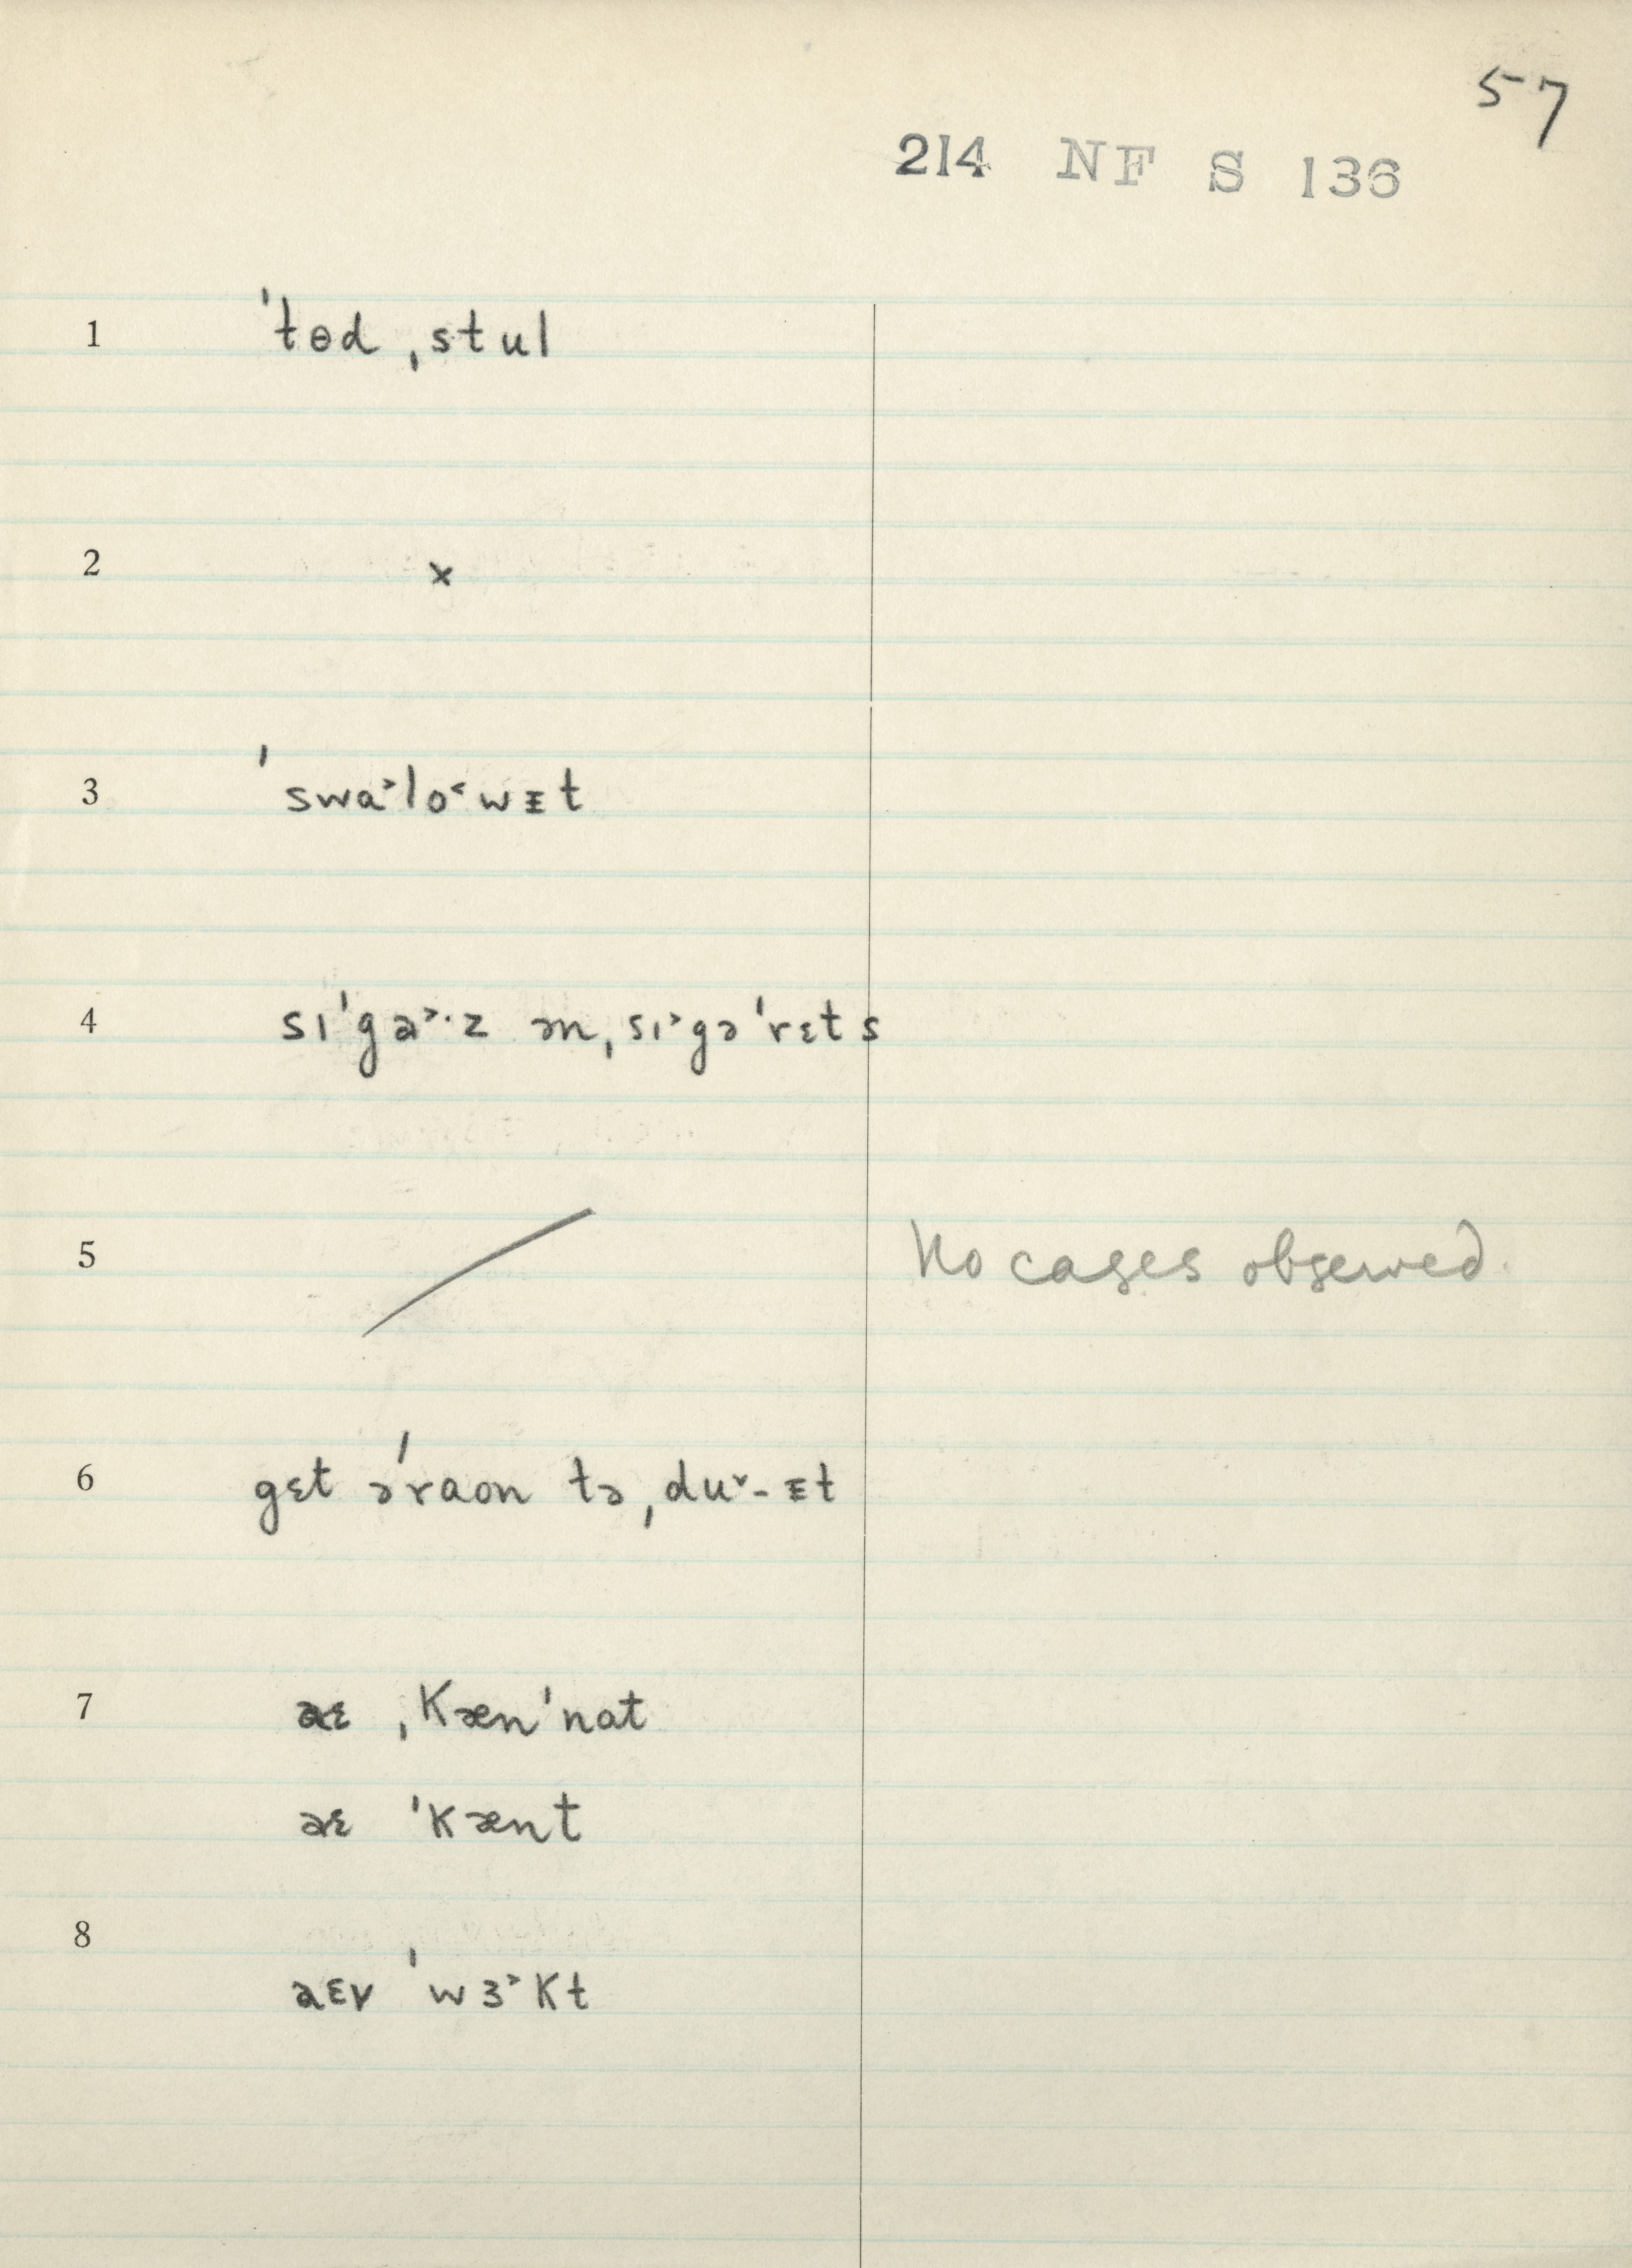 57
214 NF S 136
1 ˈtɵd ˌstul
2 ×
3 ˈswa˃lo˂wᵻt
4 sɪˈga˃·z ən ˌsɪ˃gəˈrɛts
5 / No cases observed.
6 gɛt əˈraʊn tə ˌdu˅-ᵻt
7 aɛ ˌkænˈnat
aɛ ˈkænt
8
aɛv ˈwɜ˃kt